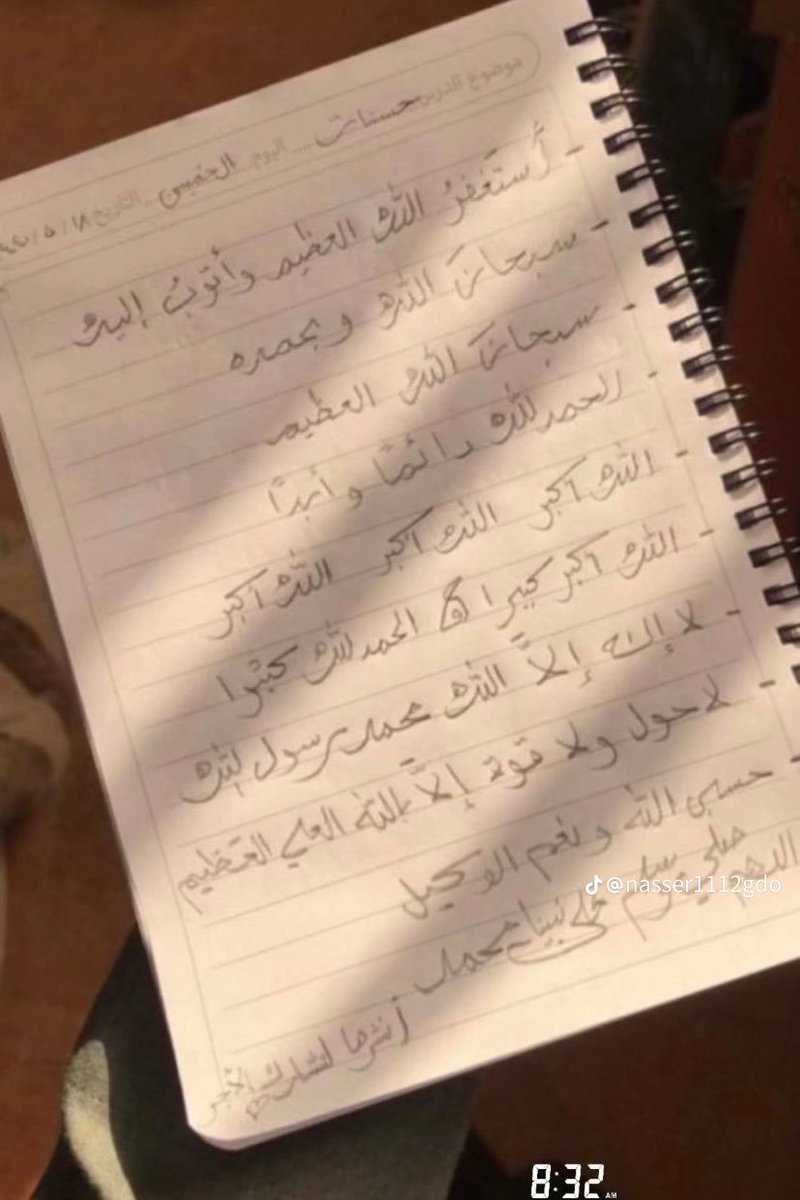 موضوع الدرس حسنات
اليوم الخميس التاريخ ١٨ / ٥ /
- أَستَغفِرُ اللّٰه العظيم وأتوبُ إليه
- سبحانَ اللّٰه وبحمده
- سبحانَ اللّٰه العظيم
- الحمدللّٰه دائمًا و أبدًا
- اللّٰه اكبر اللّٰه اكبر اللّٰه اكبر
- اللّٰه اكبر كبيرا و الحمدللّٰه كثيرا
- لا إله إلّا اللّٰه محمد رسول اللّٰه
- لا حول ولا قوة إلّا باللّٰه العلي العظيم
- حسبي اللّٰه ونعم الوكيل
اللهم صلي وسلم على نبينا محمد
أنشرها لنشارك الأجر
@nasser1112gdo
8:32 AM